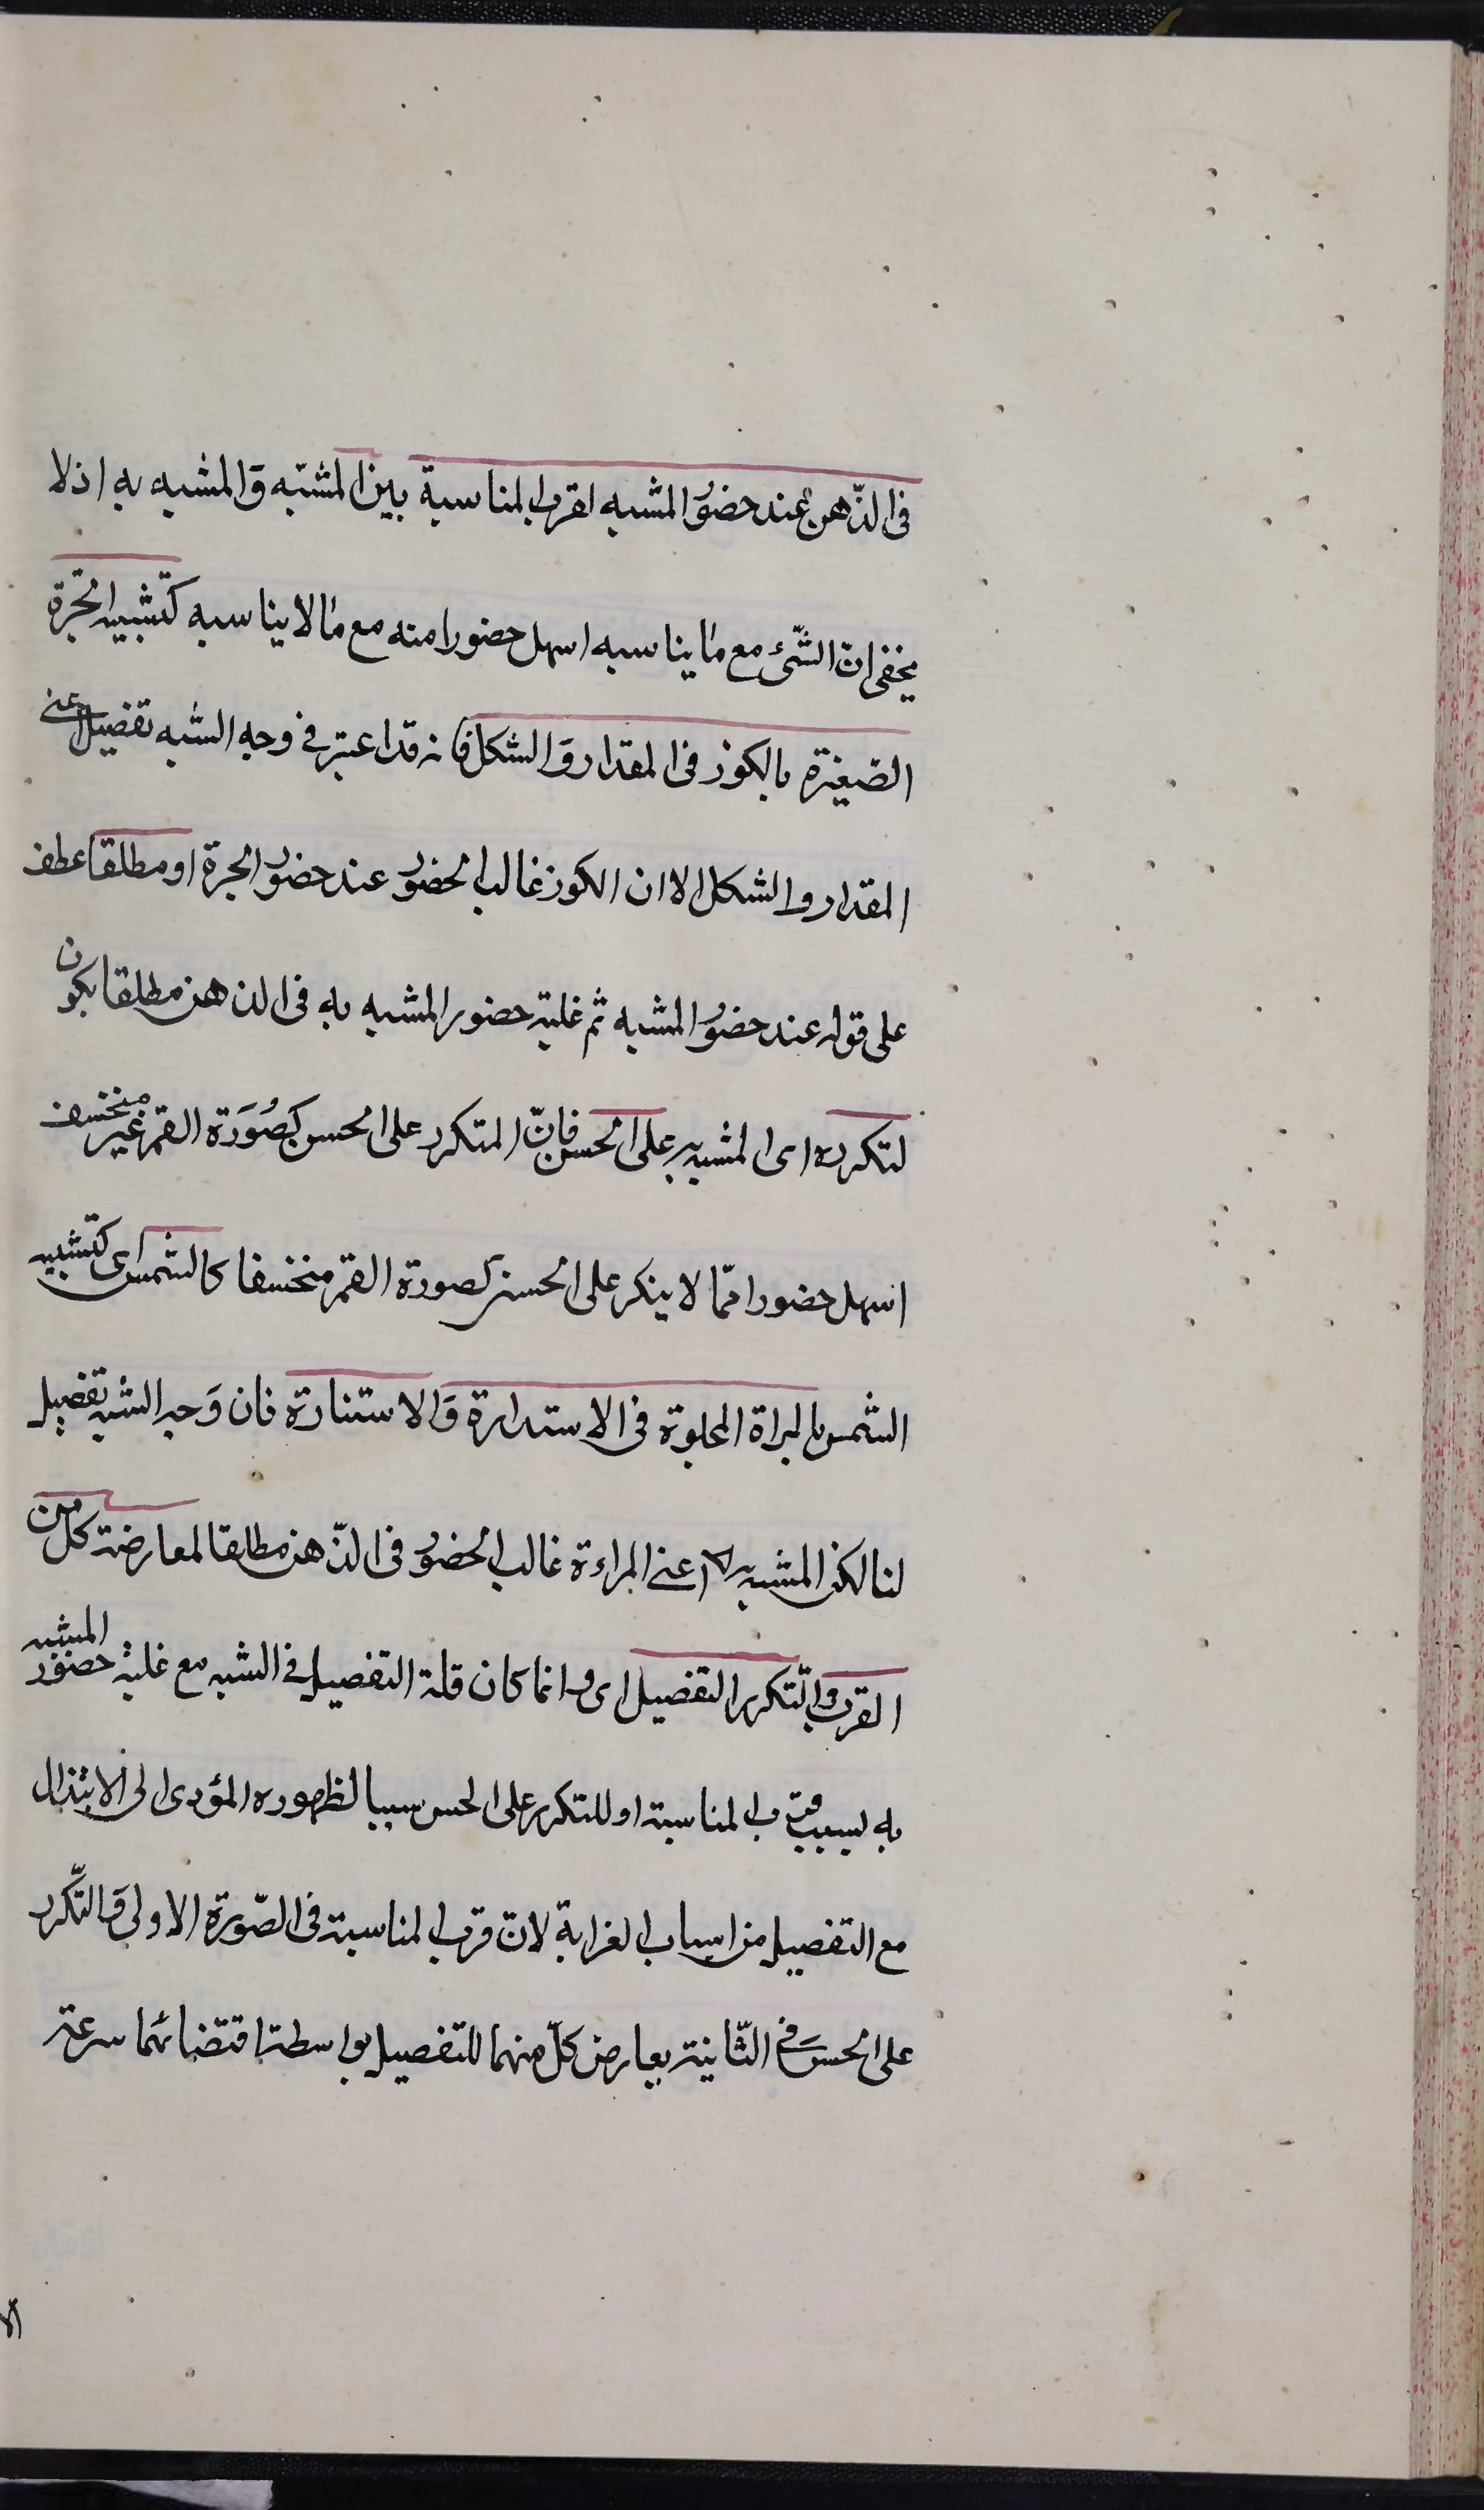 فی الذّهن عند حضور المشبه لقرب المناسبة بین المشبّه وَالمشبه به اذ لا
یخفی انّ الشّیٔ مع ما یناسبه اسهل حضورا منه مع ما لا یناسبه کتشبیه الجرّة
الصّغیرة بالکوز فی المقدار وَالشکل فانه قد اعتبر فی وجه الشبه تفصیل اعنی
المقدار والشکل الا ان الکوز غالب الحضور عند حضور الجرة او مطلقا عطف
علی قوله عند حضور المشبه ثم غلبة حضور المشبه به فی الذهن مطلقا یکون
لتکرره ای المشبه به علی الحس فانّ المتکرر علی الحس کصُوَرة القمر غیر منخسف
اسهل حضورا ممّا لا یتکرر علی الحس کصورة القمر منخسفا کالشمس ای کتشبیه
الشمس بالمراة المجلوة فی الاستدارة وَالاستنارة فان وَجه الشبه تفصیل
لنا لکن المشبه به اعنی المراءة غالب الحضور فی الذّهن مطلقا لمعارضة کل من
القرب والتّکرر التفصیل ای وانما کان قلة التفصیل فی الشبه مع غلبة حضور المشبه
به بسبب قرب المناسبة او للتکرر علی الحس سببا لظهوره المؤدی الی الابتذال
مع التفصیل من اسباب الغرابة لانّ قرب المناسبة فی الصّورة الاولی وَالتّکرر
علی الحس فی الثّانیة یعارض کلّ منهما للتفصیل بواسطة اقتضائهما سرعة